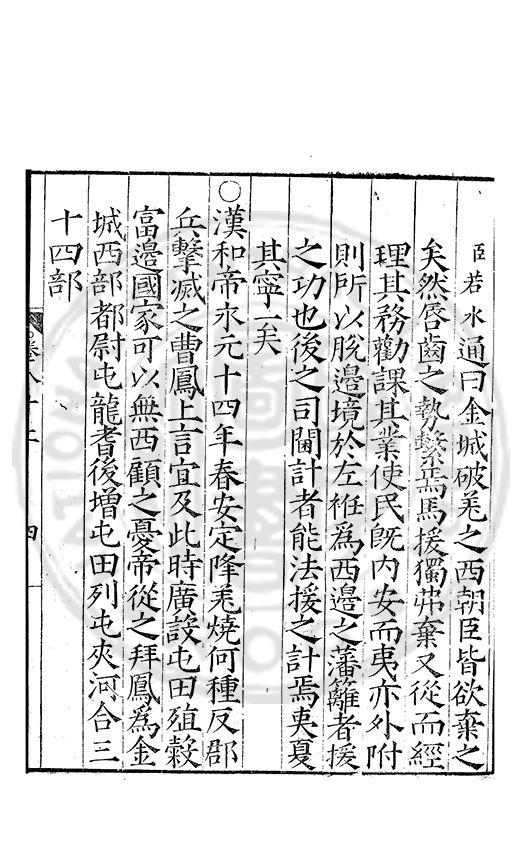 臣若水通曰金城破羌之西朝臣皆欲棄之
矣然唇齒之勢繫焉馬援獨弗棄又從而經
理其務勸課其業使民旣内安而夷亦外附
則所以脫邊境於左衽爲西邊之藩籬者援
之功也後之司閫計者能法援之計焉夷夏
其寧一矣
○漢和帝永元十四年春安定降羌燒何種反郡
兵擊滅之曹鳳上言宜及此時廣設屯田殖穀
富邊國家可以無西顧之憂帝從之拜鳳爲金
城西部都尉屯龍耆後增屯田列屯夾河合三
十四部
卷八十二 四